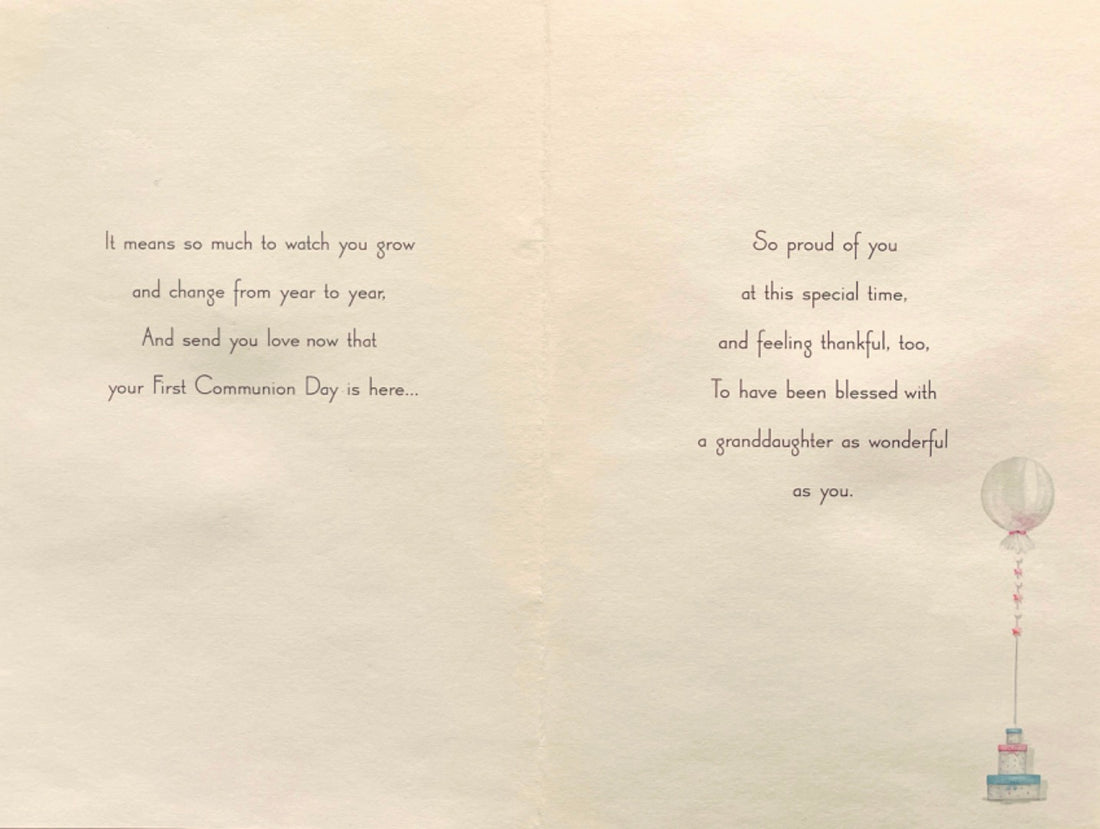 It means so much to watch you grow
and change from year to year,
And send you love now that
your First Communion Day is here...
So proud of you
at this special time,
and feeling thankful, too,
To have been blessed with
a granddaughter as wonderful
as you.